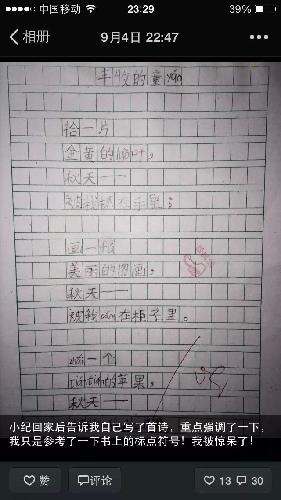 中国移动
23:29
39%
相册
9月4日 22:47
丰收的童yáo
拾一片
金黄的
秋天——
美丽的图画,
秋天——
被我 在柜子里。
一个
的苹果,
秋天——
小纪回家后告诉我自己写了首诗，重点强调了一下，
我只是参考了一下书上的标点符号！我被惊呆了！
赞
评论
13
30